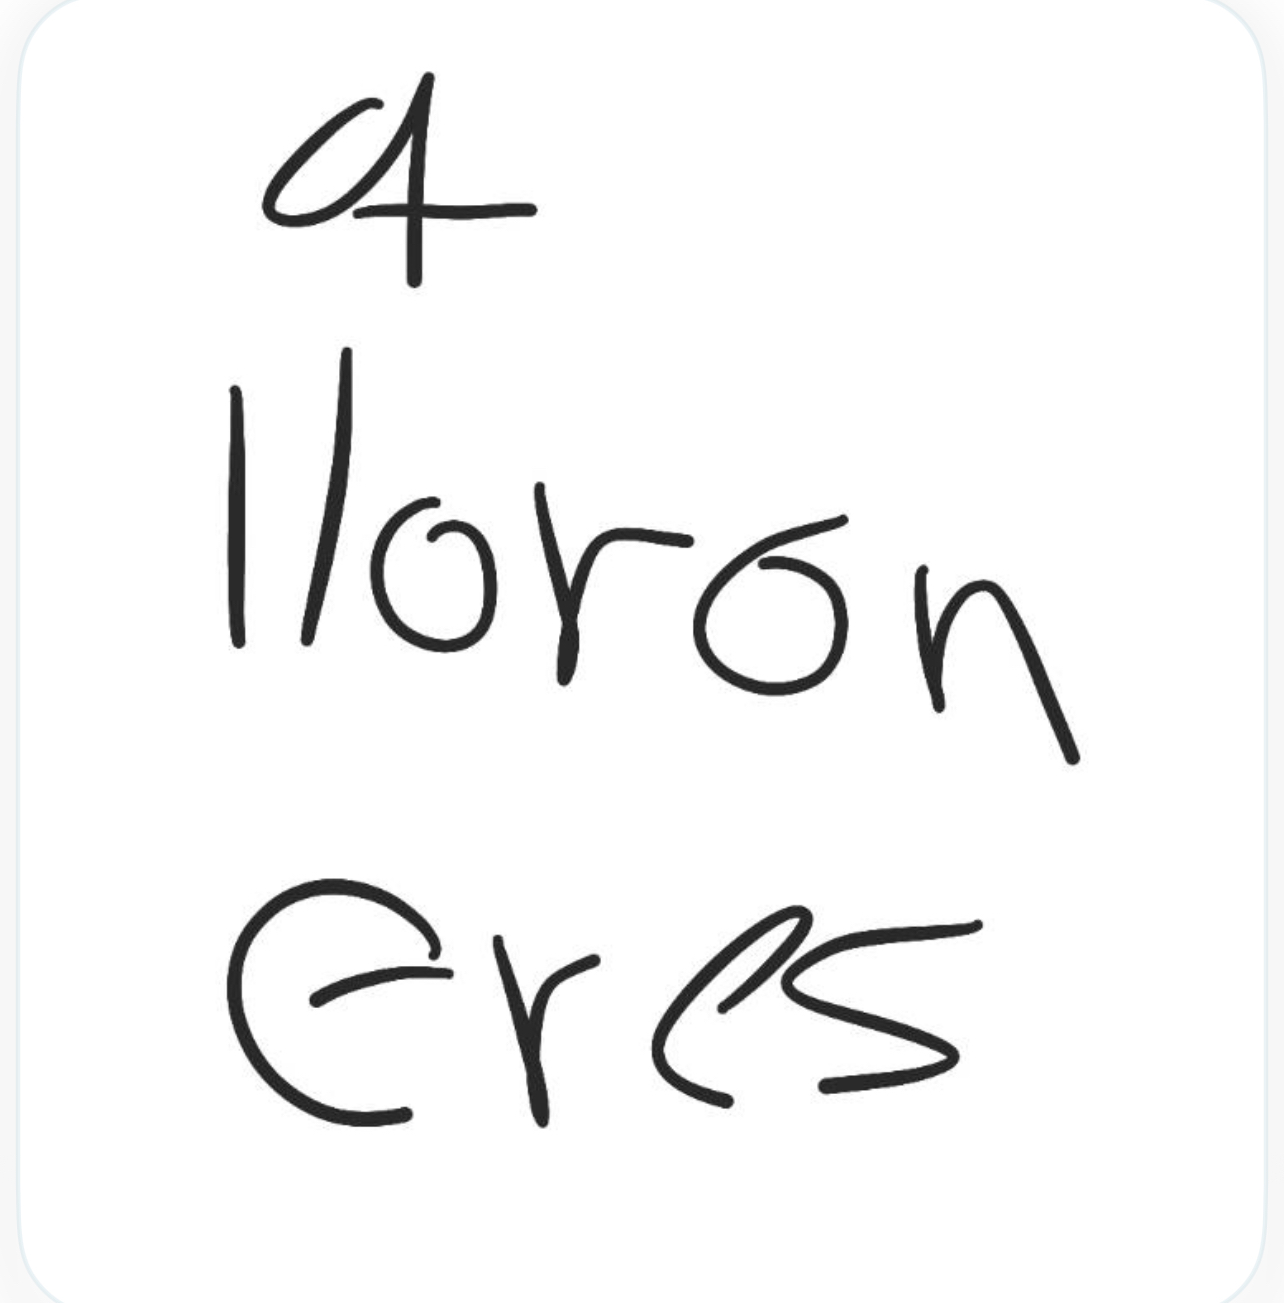 a
llorón
eres